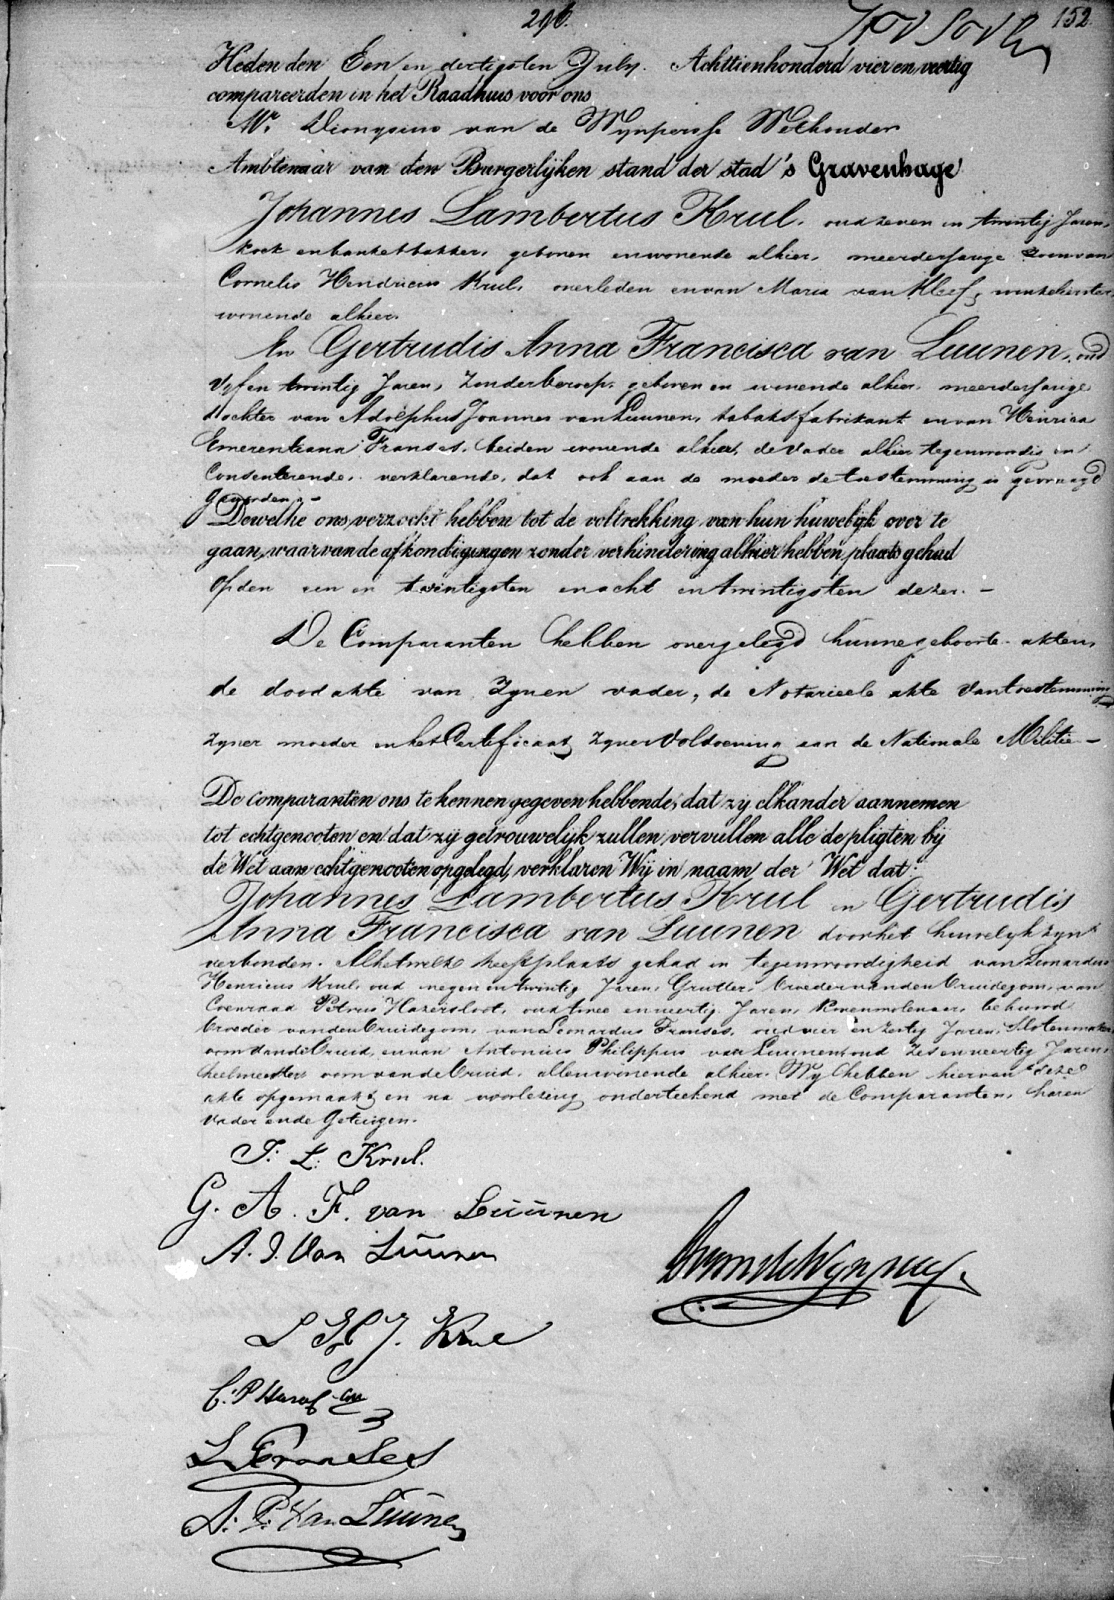 296. 152.
Heden den Een en dertigsten July. Achttienhonderd vier en veertig
compareerden in het Raadhuis voor ons
Mr. Dionysius van de Wynpersse Wethouder
Ambtenaar van den Burgerlijken stand der stad 's Gravenhage
Johannes Lambertus Krul, oud zeven en twintig Jaren,
kok en banketbakker, geboren en wonende alhier, meerderjarige zoon van
Cornelis Hendricus Krul, overleden en van Maria van Kleef, winkelierster,
wonende alhier.
En Gertrudis Anna Francisca van Luunen, oud
Vyf en twintig Jaren, Zonder beroep, geboren en wonende alhier, meerderjarige
dochter van Adolphus Joannes van Luunen, tabaksfabrikant en van Henrica
Emerentiana Franses, beiden wonende alhier, de Vader alhier tegenwoordig en
Consenterende, verklarende, dat ook aan de moeder de toestemming is gevraagd
geworden.-
Dewelke ons verzocht hebben tot de voltrekking van hun huwelijk over te
gaan, waarvan de afkondigingen zonder verhindering alhier hebben plaats gehad
op den een en twintigsten en acht en twintigsten dezer. -
De Comparanten hebben overgelegd hunne geboorte-akten,
de doodakte van Zynen vader, de Notarieele akte van toestemming
Zyner moeder en het Certificaat Zyner Voldoening aan de Nationale Militie -
De comparanten ons te kennen gegeven hebbende, dat zij elkander aannemen
tot echtgenooten en dat zij getrouwelijk zullen vervullen alle de pligten bij
de Wet aan echtgenooten opgelegd, verklaren Wij in naam der Wet dat:
Johannes Lambertus Krul en Gertrudis
Anna Francisca van Luunen door het huwelijk zyn
verbonden. Alhetwelk heeft plaats gehad in tegenwoordigheid van Leonardus
Henricus Krul, oud negen en twintig Jaren, Grutter, broeder van den Bruidegom, van
Coenraad Petrus Hazersloot, oud twee en veertig Jaren, Korenmolenaar, behuwd
broeder van den Bruidegom, van Leonardus Franses, oud vier en zestig Jaren, Slotenmaker,
oom van de Bruid, en van Antonius Philippus van Luunen oud Zes en veertig Jaren,
heelmeester oom van de Bruid, allen wonende alhier. Wy hebben hiervan deze
akte opgemaakt en na voorlezing onderteekend met de Comparanten, haren
Vader en de Getuigen.
J. L. Krul.
G. A. F. van Luunen
A. J. Van Luunen
L H J Krul
C. P. Hazersloot
L Franses
A. P. Van Luunen